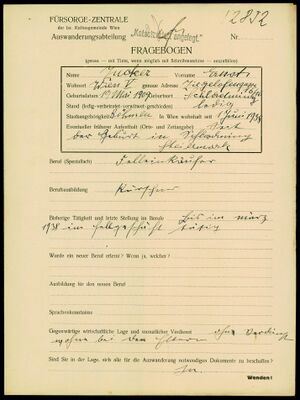 FÜRSORGE-ZENTRALE
der isr. Kultusgemeinde Wien
Auswanderungsabteilung
"Katasterblatt angelegt."
Nr.
FRAGEBOGEN
(genau — mit Tinte, wenn möglich mit Schreibmaschine — auszufüllen)
Name Vorname Ernst
Wohnort Wien V genaue Adresse Ziegelofengasse
Geburtsdatum 19. Mai 1907 Geburtsort Schladming
Stand (ledig-verheiratet-verwitwet-geschieden) ledig
Staatsangehörigkeit In Wien wohnhaft seit 1 Juni 1938
Eventueller früherer Aufenthalt (Orts- und Zeitangabe) Seit
der Geburt in Schladming
Steiermark
Beruf (Spezialfach) Felleinkäufer
Berufsausbildung Kürschner
Bisherige Tätigkeit und letzte Stellung im Berufe Bis im März
1938 im Fellgeschäft tätig
Wurde ein neuer Beruf erlernt? Wenn ja, welcher?
Ausbildung für den neuen Beruf
Sprachenkenntnisse
Gegenwärtige wirtschaftliche Lage und monatlicher Verdienst ohne Verdienst
wohne bei den Eltern
Sind Sie in der Lage, sich alle für die Auswanderung notwendigen Dokumente zu beschaffen?
Ja.
Wenden!